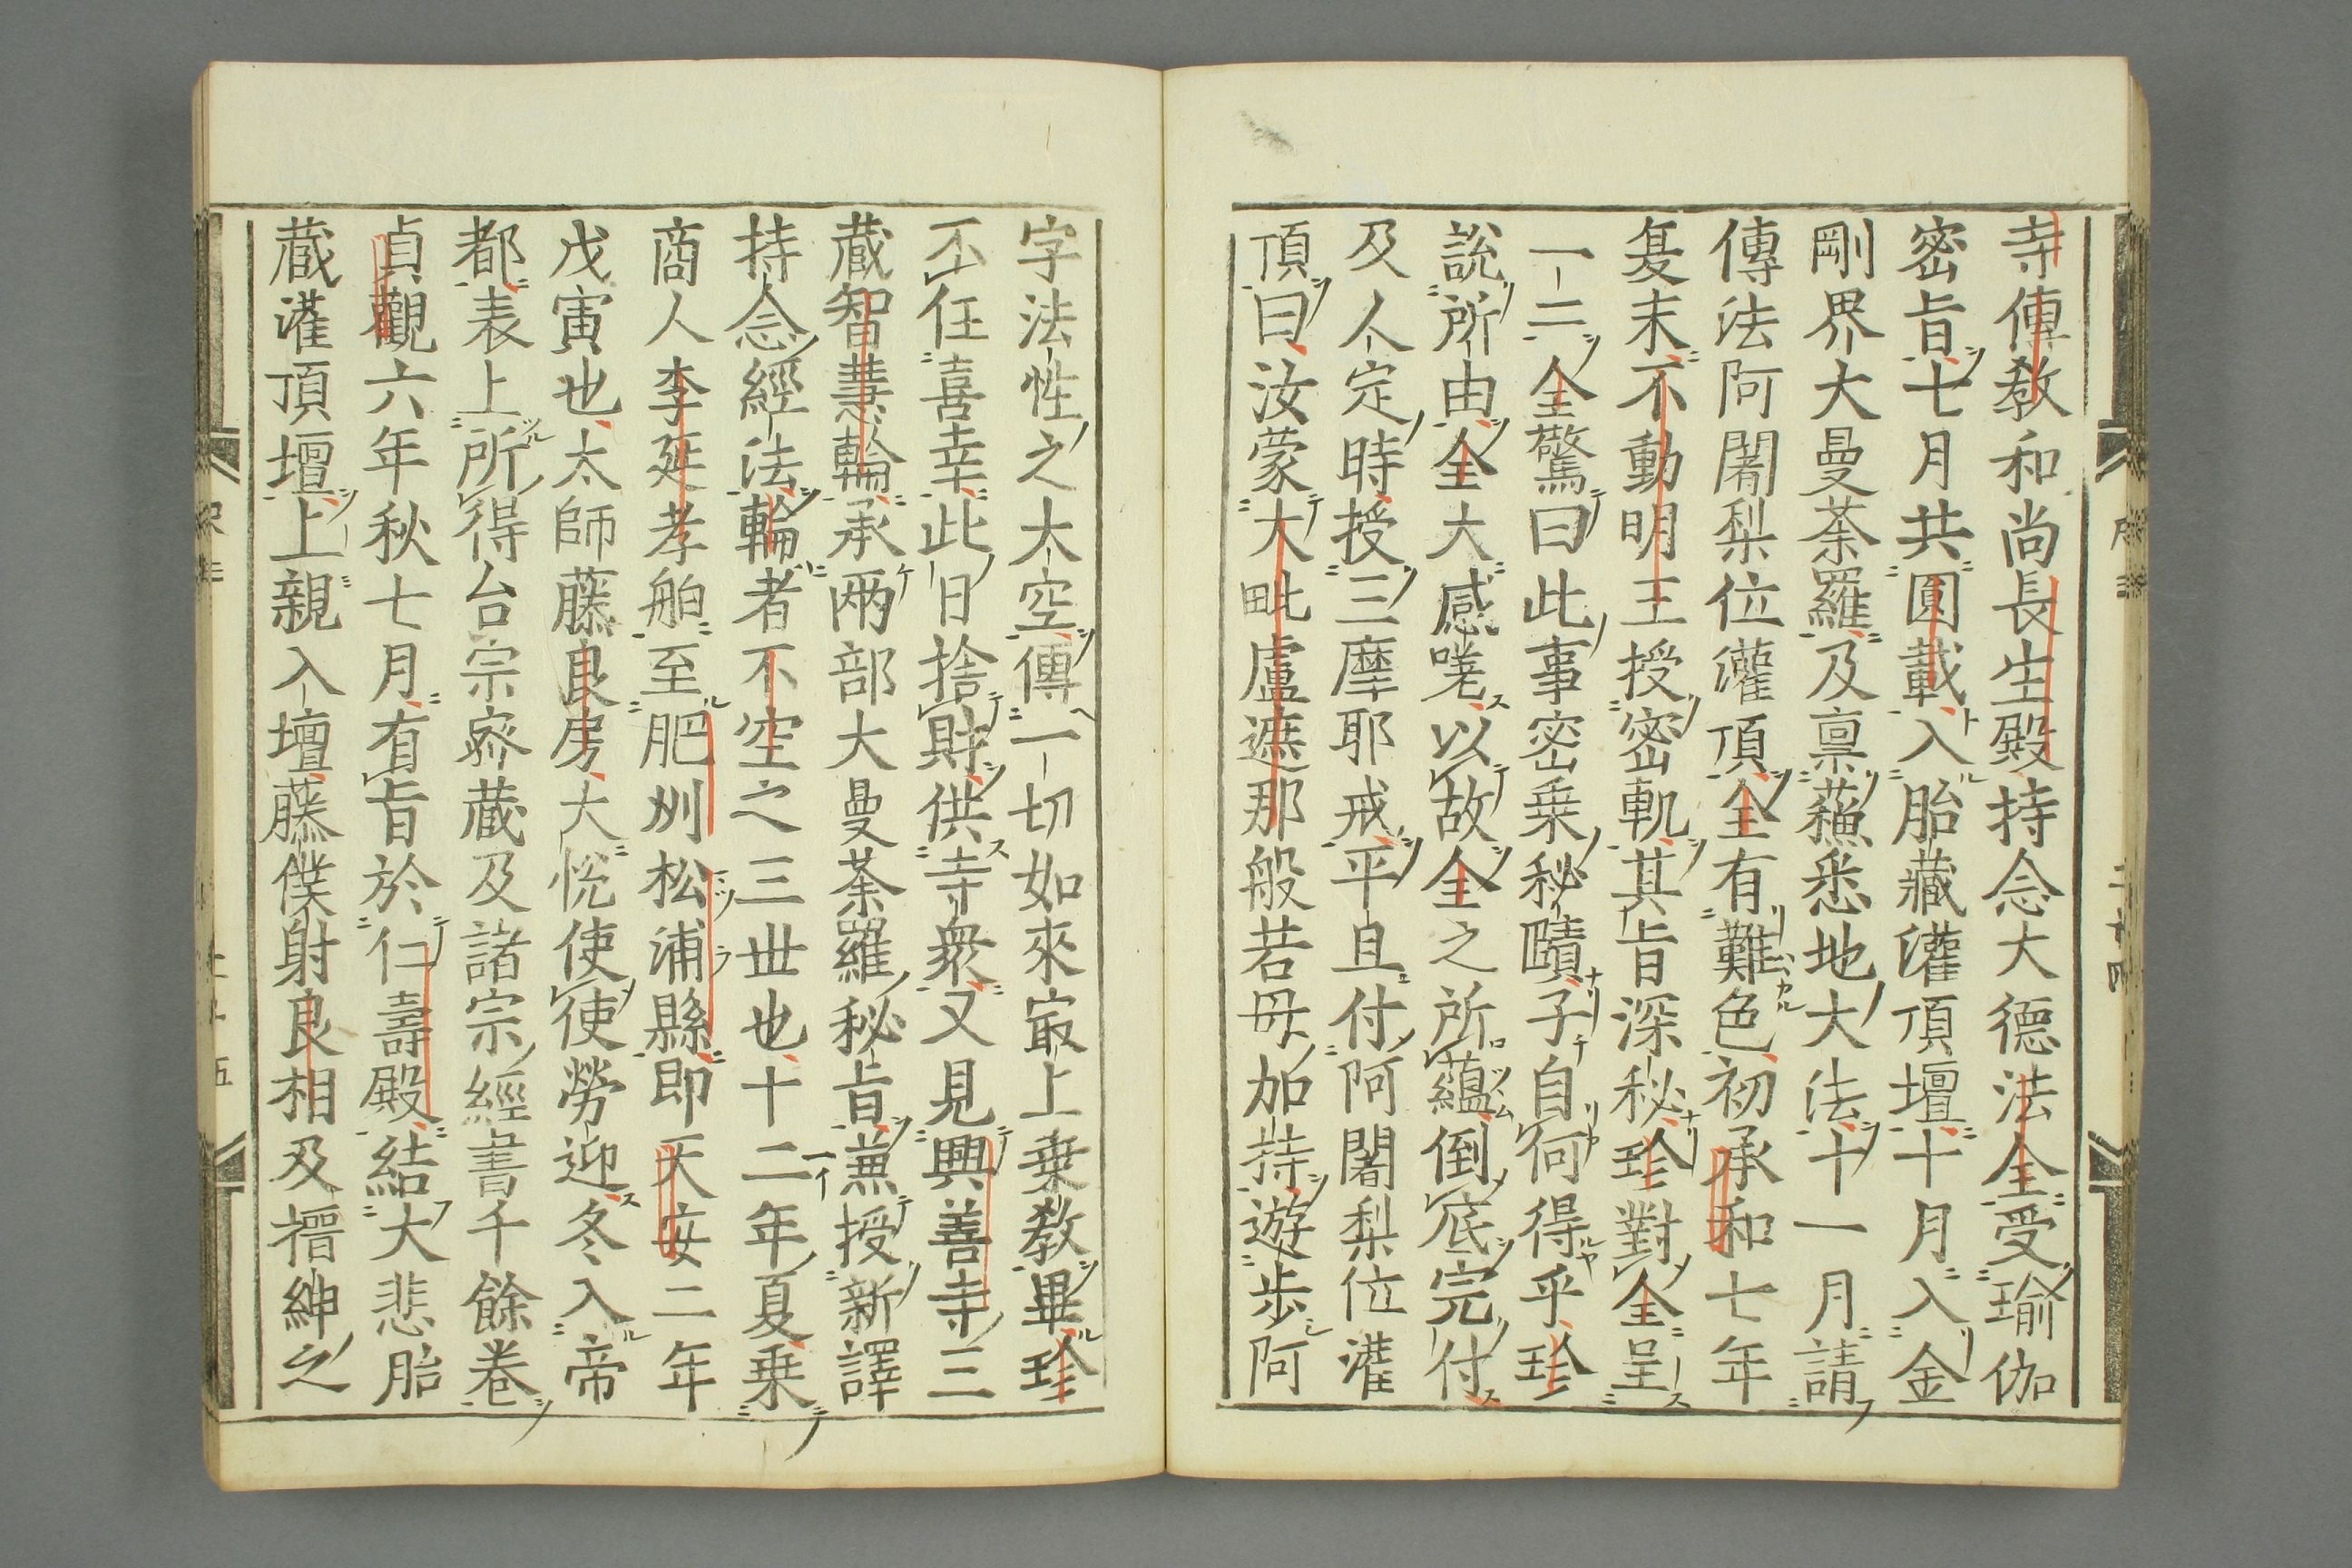 寺傳敎和尚長生殿持念大德法全受瑜伽
密旨七月共圓載入胎藏灌頂壇十月入金
剛界大曼荼羅及禀蘓悉地大法十一月請
傳法阿闍梨位灌頂全有難色初承和七年
冬末不動明王授密軌其旨深秘珍對全呈
一二全驚曰此事密乗秘賾子自何得乎珍
說所由全大感嘆以故全之所蘊倒底完付
及人定時授三摩耶戒平旦付阿闍梨位灌
頂曰汝蒙大毗盧遮那般若母加持遊歩阿
字法性之大空傳一切如來㝡上乗敎畢珍
不任喜幸此日捨財供寺衆又見興善寺三
藏智慧輪承兩部大曼荼羅秘旨兼授新譯
持念經法輪者不空之三世也十二年夏乗
商人李延孝舶至肥州松浦縣即天安二年
戊寅也太師藤良房大悅使使勞迎冬入帝
都表上所得台宗密藏及諸宗經書千餘卷
貞觀六年秋七月有旨於仁壽殿結大悲胎
藏灌頂壇上親入壇藤僕射良相及搢紳之